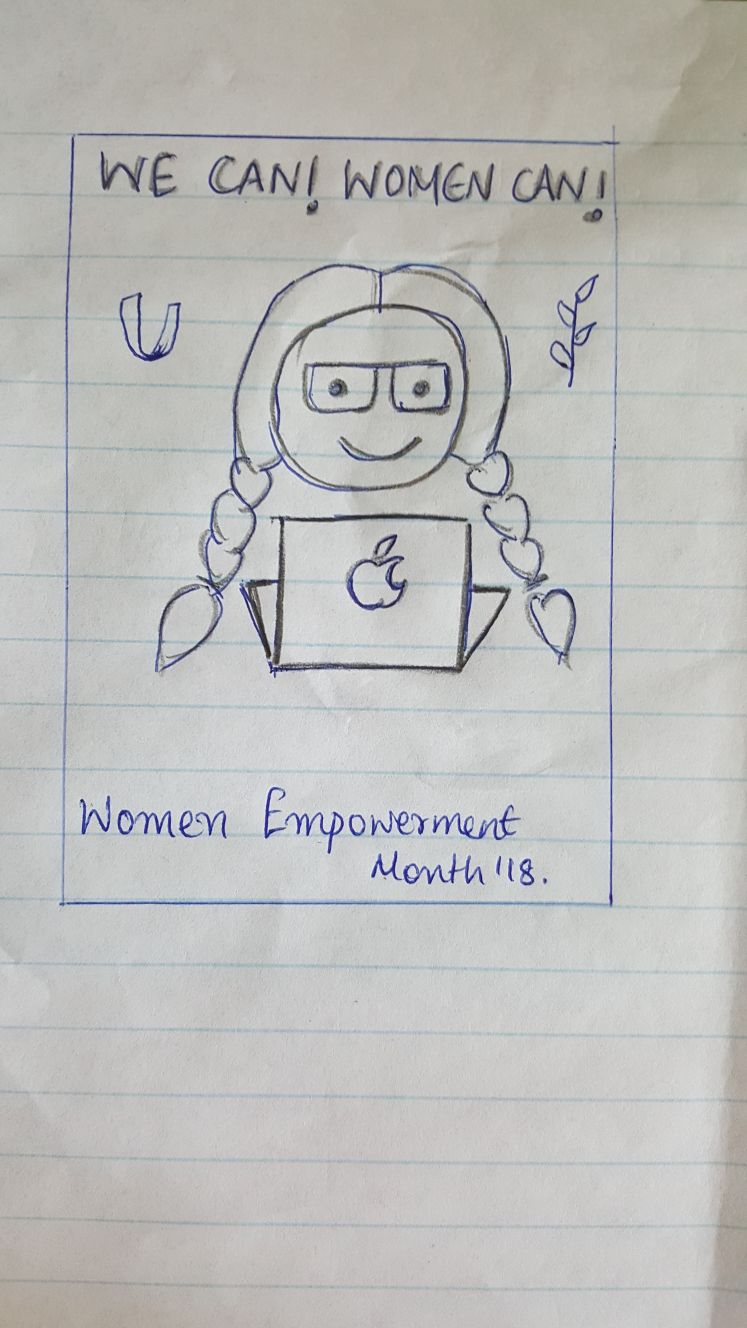 WE CAN! WOMEN CAN!
U
Women Empowerment
Month '18.